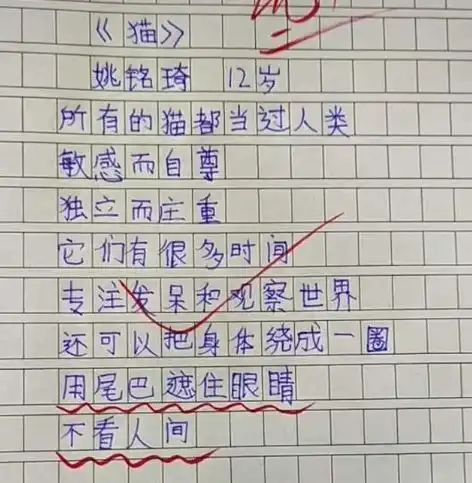 《猫》
姚铭琦 12岁
所有的猫都当过人类
敏感而自尊
独立而庄重
它们有很多时间
专注发呆和观察世界
还可以把身体绕成一圈
用尾巴遮住眼睛
不看人间